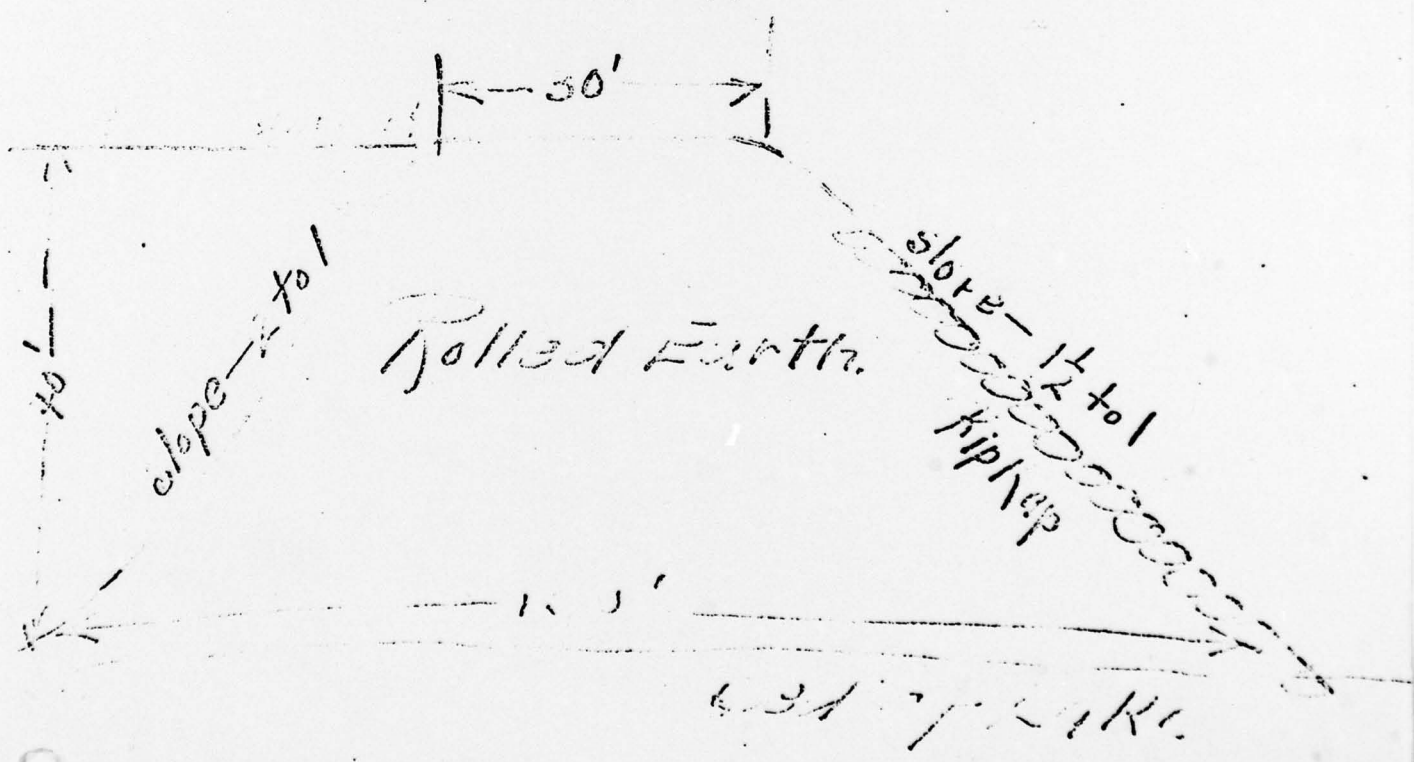 30'
40'
slope— 2 to 1
Rolled Earth.
slope— 1½ to 1
Riprap